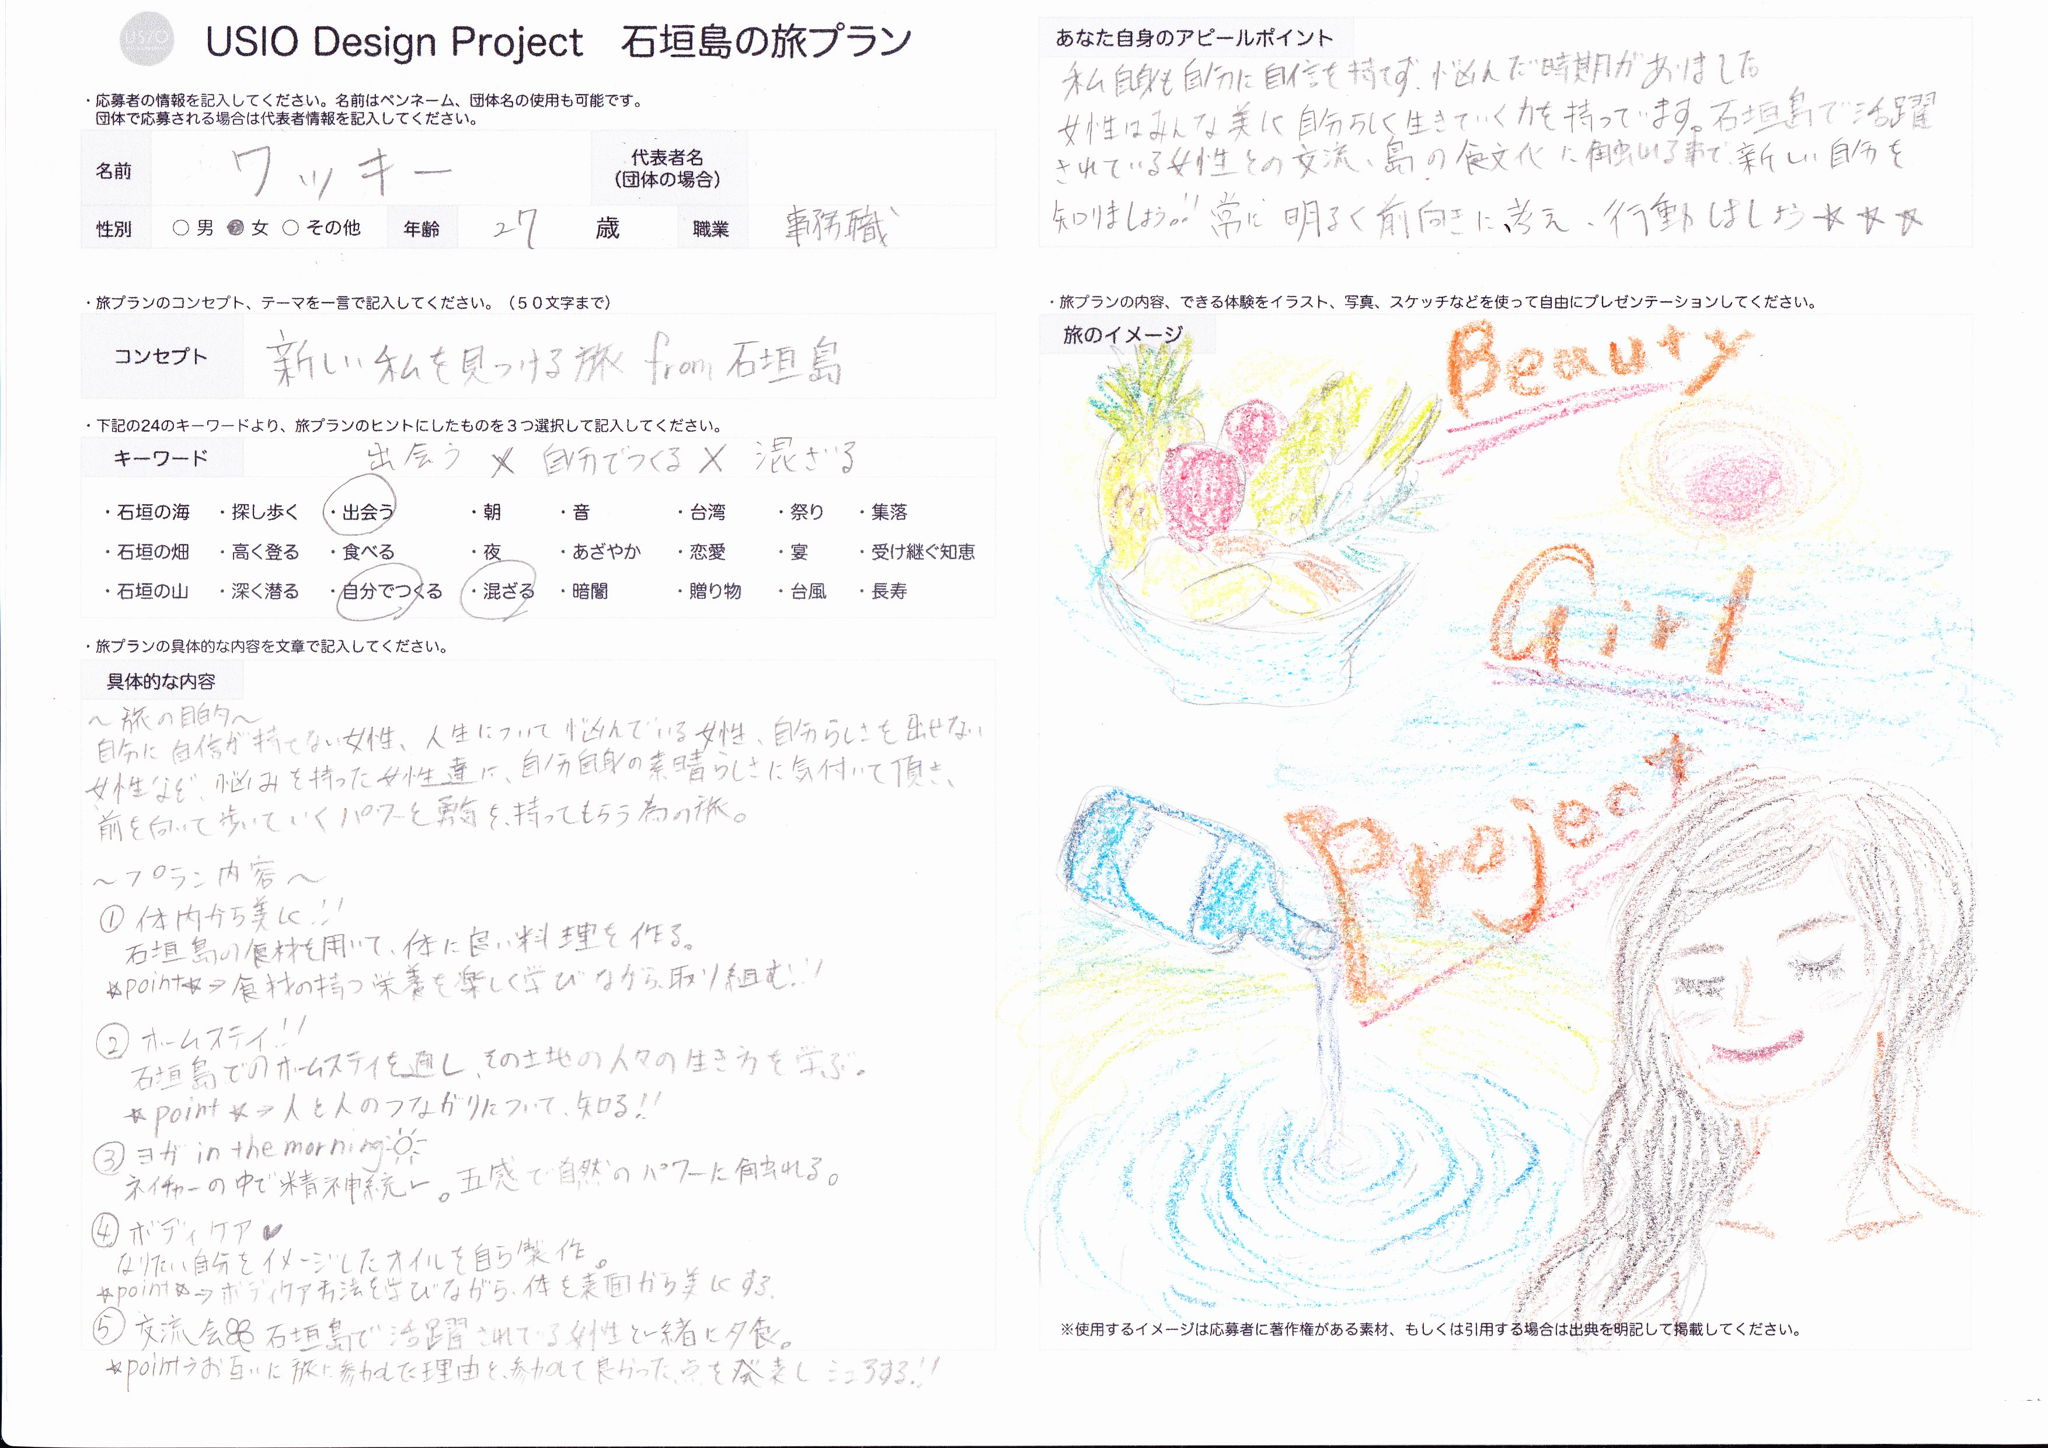 USIO
USIO Design Project 石垣島の旅プラン
・応募者の情報を記入してください。名前はペンネーム、団体名の使用も可能です。
団体で応募される場合は代表者情報を記入してください。
名前 ワッキー 代表者名
（団体の場合）
性別 ○ 男 ● 女 ○ その他 年齢 27 歳 職業 事務職
・旅プランのコンセプト、テーマを一言で記入してください。（５０文字まで）
コンセプト 新しい私を見つける旅 from 石垣島
・下記の24のキーワードより、旅プランのヒントにしたものを３つ選択して記入してください。
キーワード 出会う × 自分でつくる × 混ざる
・石垣の海 ・探し歩く ・出会う ・朝 ・音 ・台湾 ・祭り ・集落
・石垣の畑 ・高く登る ・食べる ・夜 ・あざやか ・恋愛 ・宴 ・受け継ぐ知恵
・石垣の山 ・深く潜る ・自分でつくる ・混ざる ・暗闇 ・贈り物 ・台風 ・長寿
・旅プランの具体的な内容を文章で記入してください。
具体的な内容
〜旅の目的〜
自分に自信が持てない女性、人生について悩んでいる女性、自分らしさを出せない
女性など、悩みを持った女性達に、自分自身の素晴らしさに気付いて頂き、
前を向いて歩いていくパワーと勇気を、持ってもらう為の旅。
〜プラン内容〜
① 体内から美しく!!
石垣島の食材を用いて、体に良い料理を作る。
☆point☆→食材の持つ栄養を楽しく学びながら、取り組む!!
② ホームステイ!!
石垣島でのホームステイを通し、その土地の人々の生き方を学ぶ。
☆point☆→人と人のつながりについて、知る!!
③ ヨガ in the morning
ネイチャーの中で精神統一。五感で自然のパワーに触れる。
④ ボディケア♥
なりたい自分をイメージしたオイルを自ら製作。
☆point☆→ボディケア方法を学びながら、体を表面から美しくする。
⑤ 交流会 石垣島で活躍されている女性と一緒に夕食。
☆point→お互いに旅に参加した理由と、参加して良かった点を発表しシェアする!!
あなた自身のアピールポイント
私自身も自分に自信を持てず、悩んだ時期がありました
女性はみんな美しく自分らしく生きていく力を持っています。石垣島で活躍
されている女性との交流、島の食文化に触れる事で、新しい自分を
知りましょう!! 常に明るく前向きに考え、行動しましょう☆☆☆
・旅プランの内容、できる体験をイラスト、写真、スケッチなどを使って自由にプレゼンテーションしてください。
旅のイメージ
Beauty
Girl
Project
※使用するイメージは応募者に著作権がある素材、もしくは引用する場合は出典を明記して掲載してください。